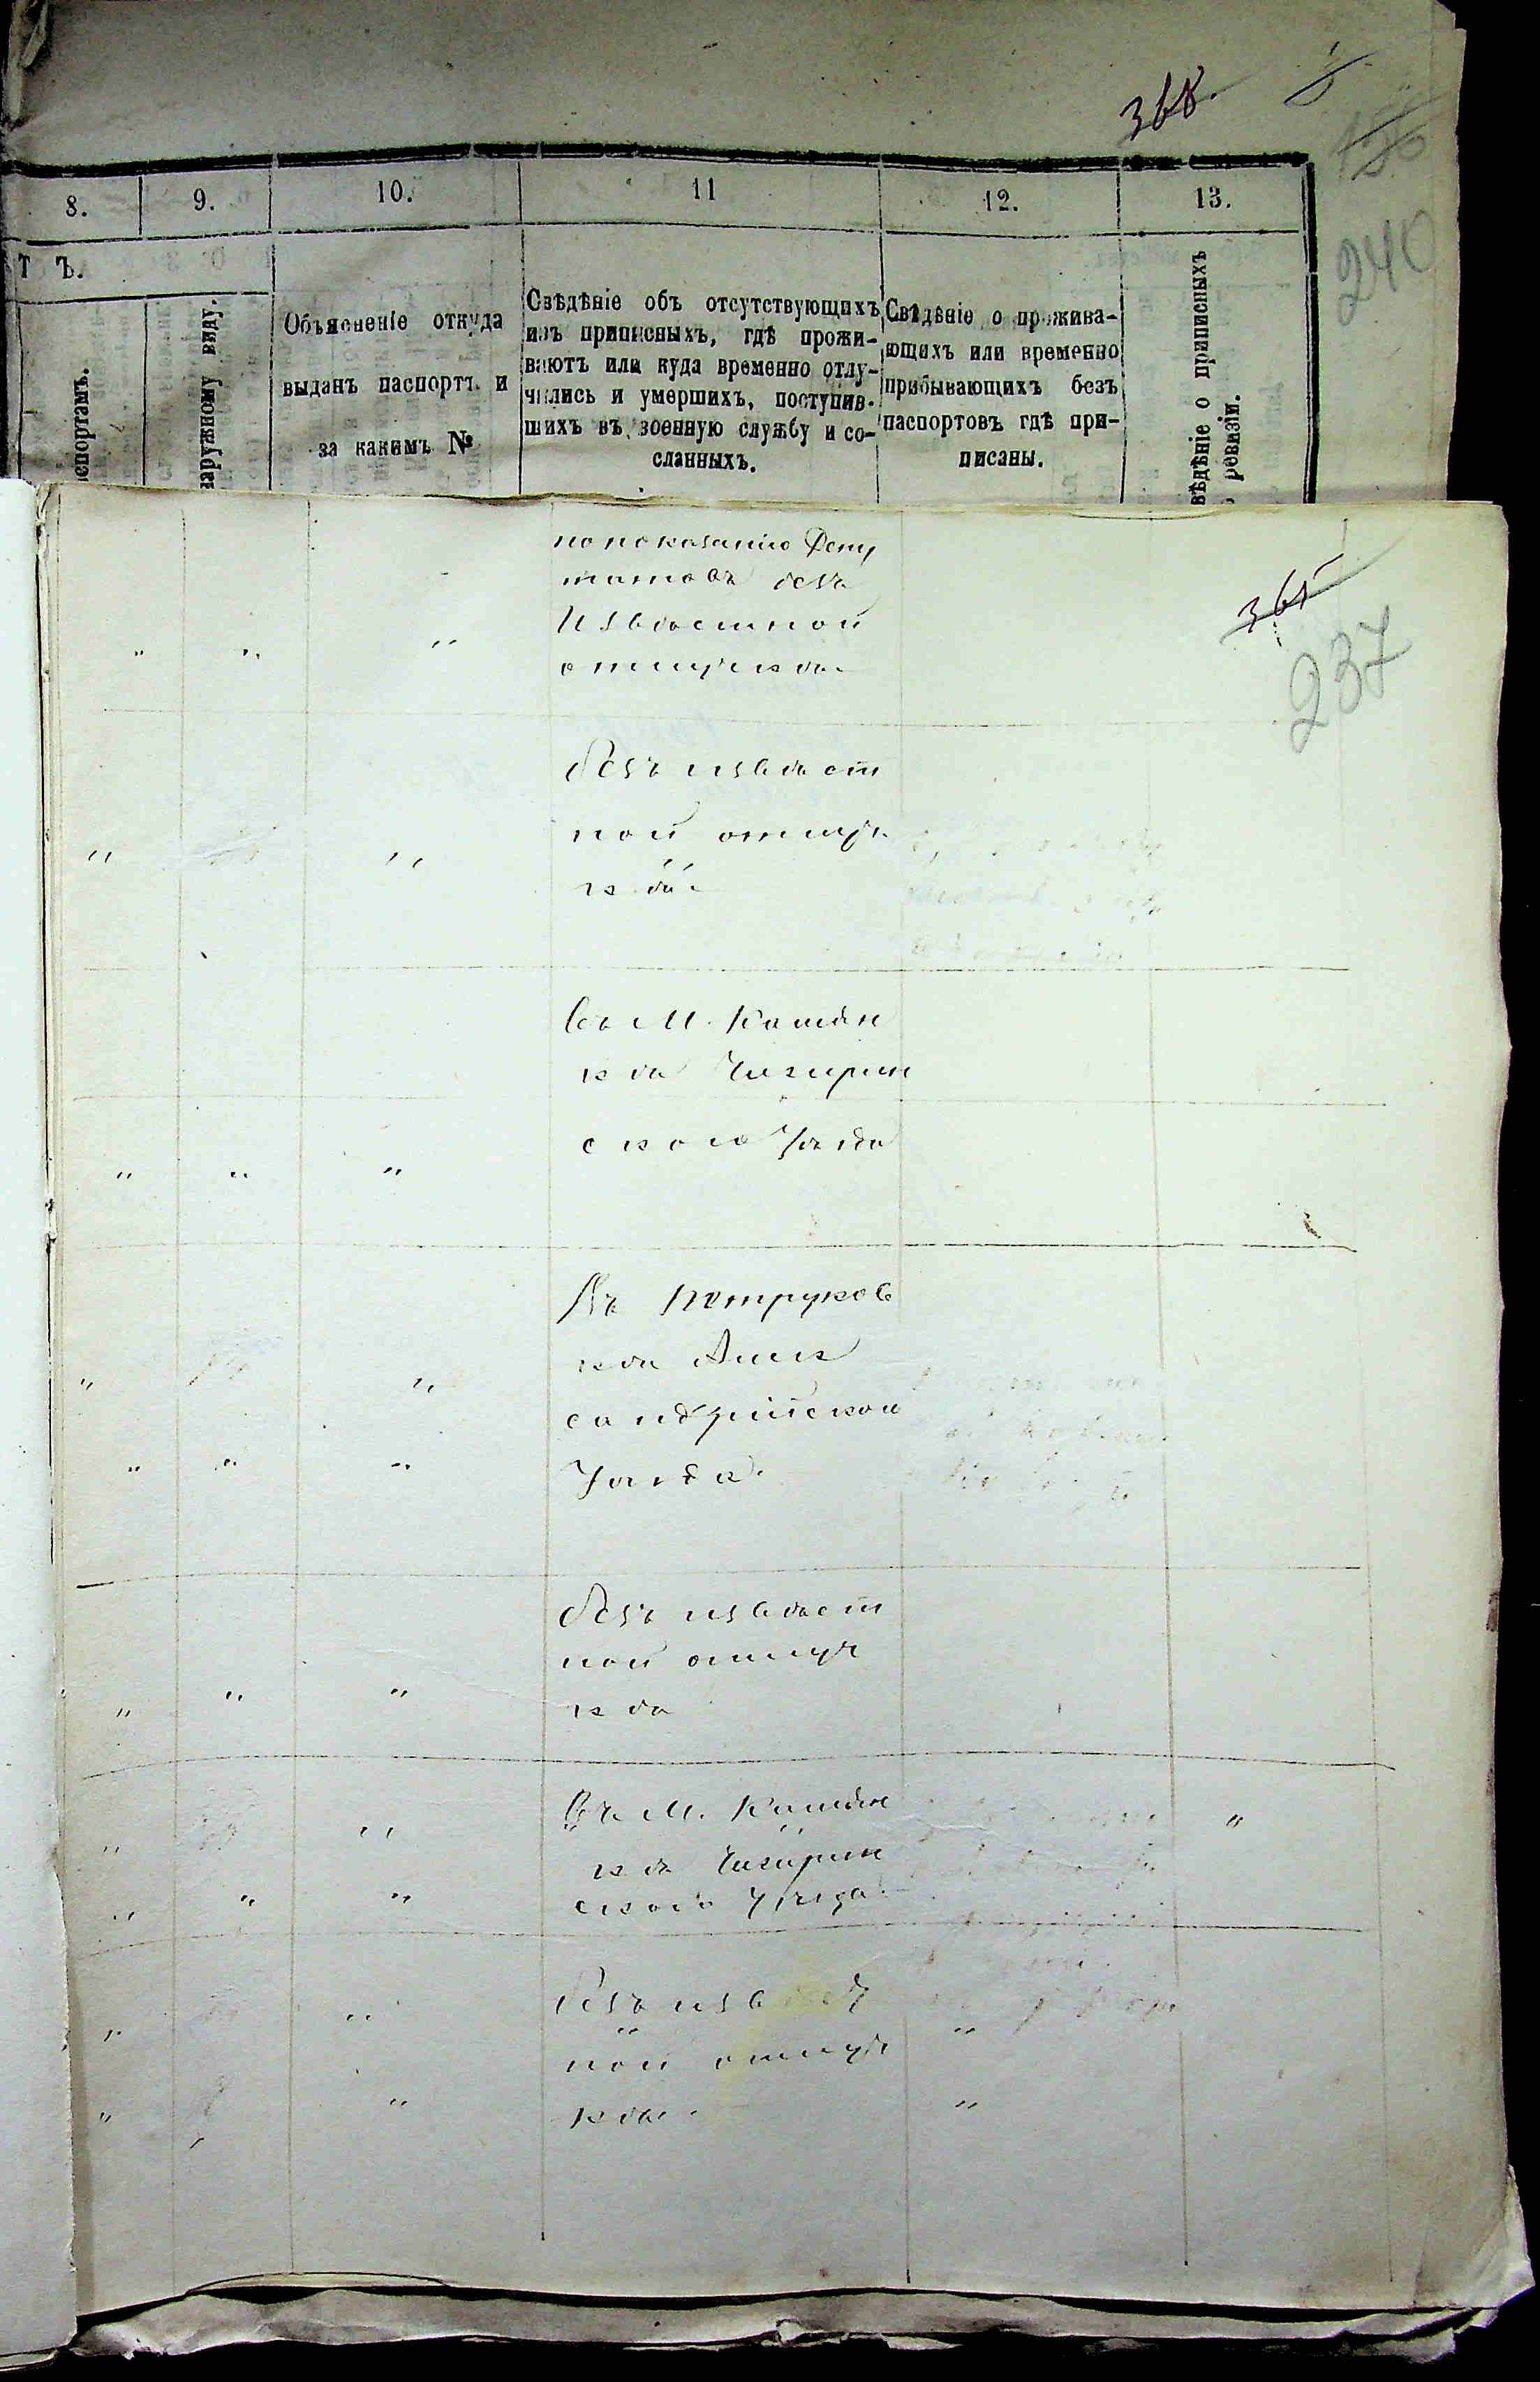 368.
150
240
8. 9. 10. 11 12. 13.
Т Ъ.
спортамъ.
наружному виду.
Объясненіе откуда
выданъ паспортъ и
за какимъ №
Свѣдѣніе объ отсутствующихъ
изъ приписныхъ, гдѣ прожи-
ваютъ или куда временно отлу-
чились и умершихъ, поступив-
шихъ въ военную службу и со-
сланныхъ.
Свѣдѣніе о прожива-
ющихъ или временно
прибывающихъ безъ
паспортовъ гдѣ при-
писаны.
вѣдѣніе о приписныхъ
ревизіи.
365
237
по показанію Депу
татовъ безъ
Извѣстной
отлучкѣ
" " "
Безъ извѣст
ной отлуч
кѣ
" "
Въ М. Камѣн
кѣ Чигирин
скаго Уѣзда
" " "
Въ Петруков
кѣ Алек
сандрійской
Уѣзда.
" "
" " "
Безъ извѣст
ной отлуч
кѣ
" " "
Въ М. Камѣн
кѣ Чигирин
скаго Уѣзда
" " "
" " "
Безъ извѣст
ной отлуч
кѣ.
" " "
" " "